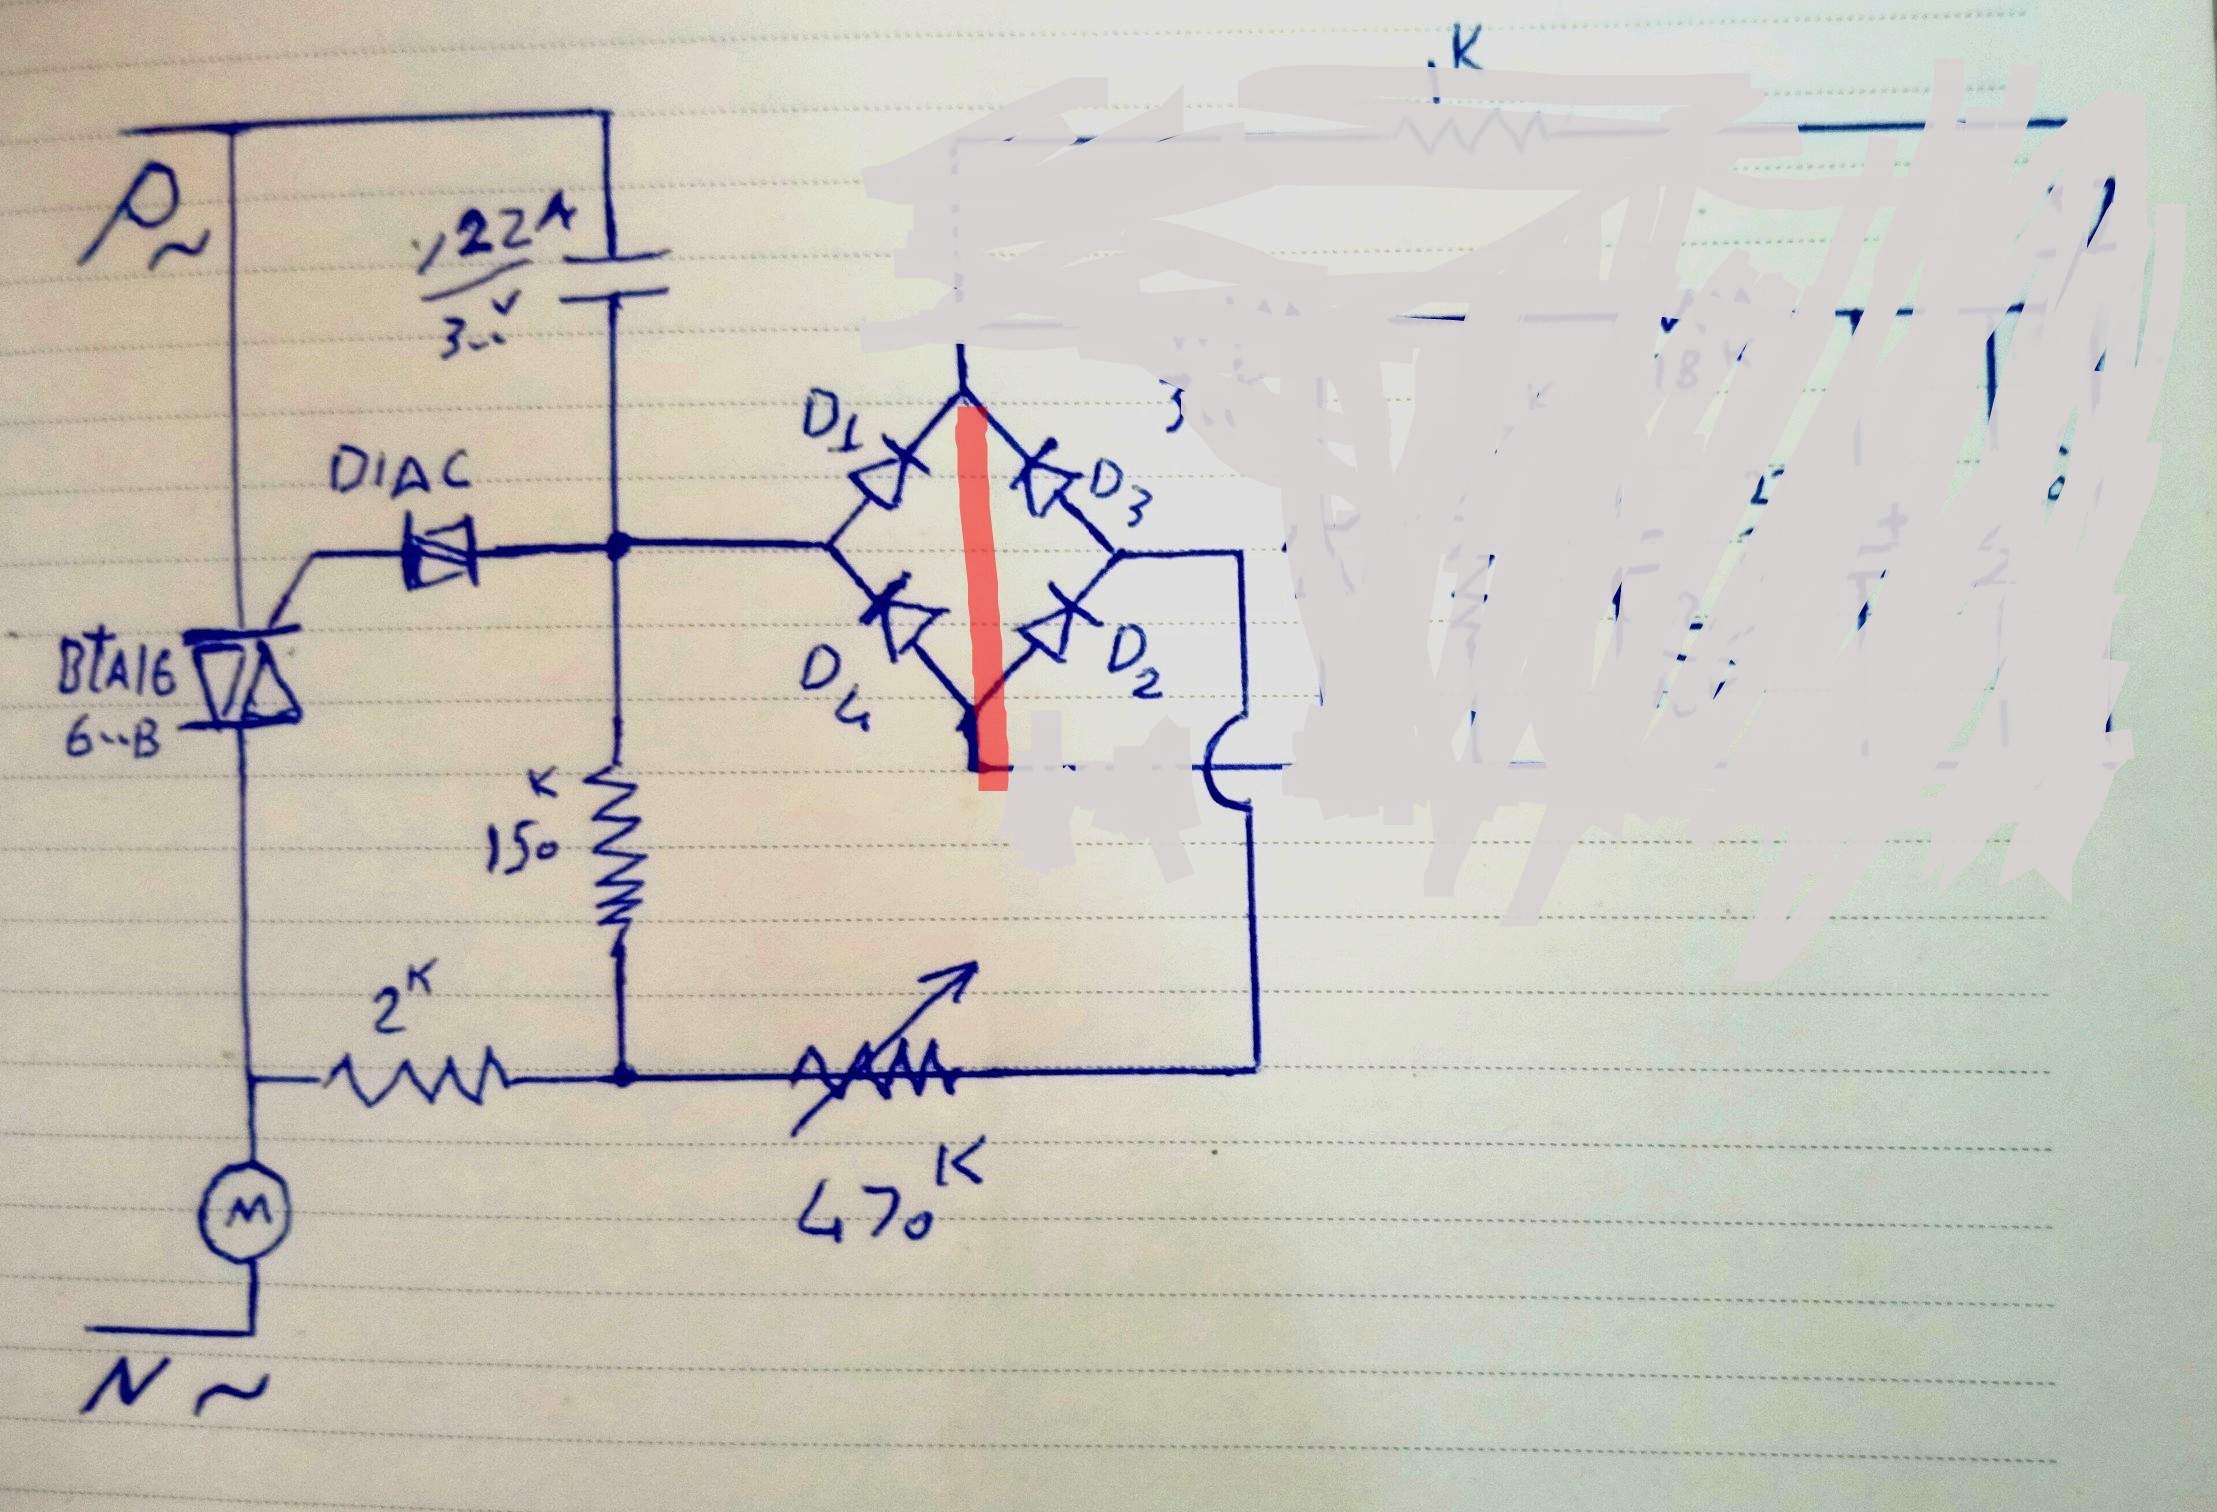 K
P~
,22
3..v
D1
DIAC
D3
18 K
BtA16
6..B
D4
D2
K
150
2K
470K
M
N ~